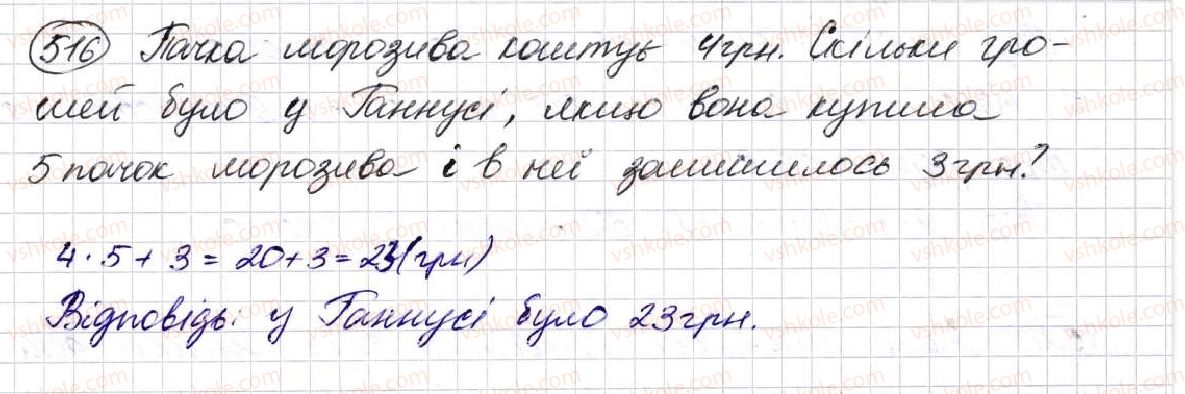 516 Пачка морозива коштує 4грн. Скільки гро-
шей було у Ганнусі, якщо вона купила
5 пачок морозива і в неї залишилось 3грн?
4 · 5 + 3 = 20 + 3 = 23(грн)
Відповідь: у Ганнусі було 23грн.